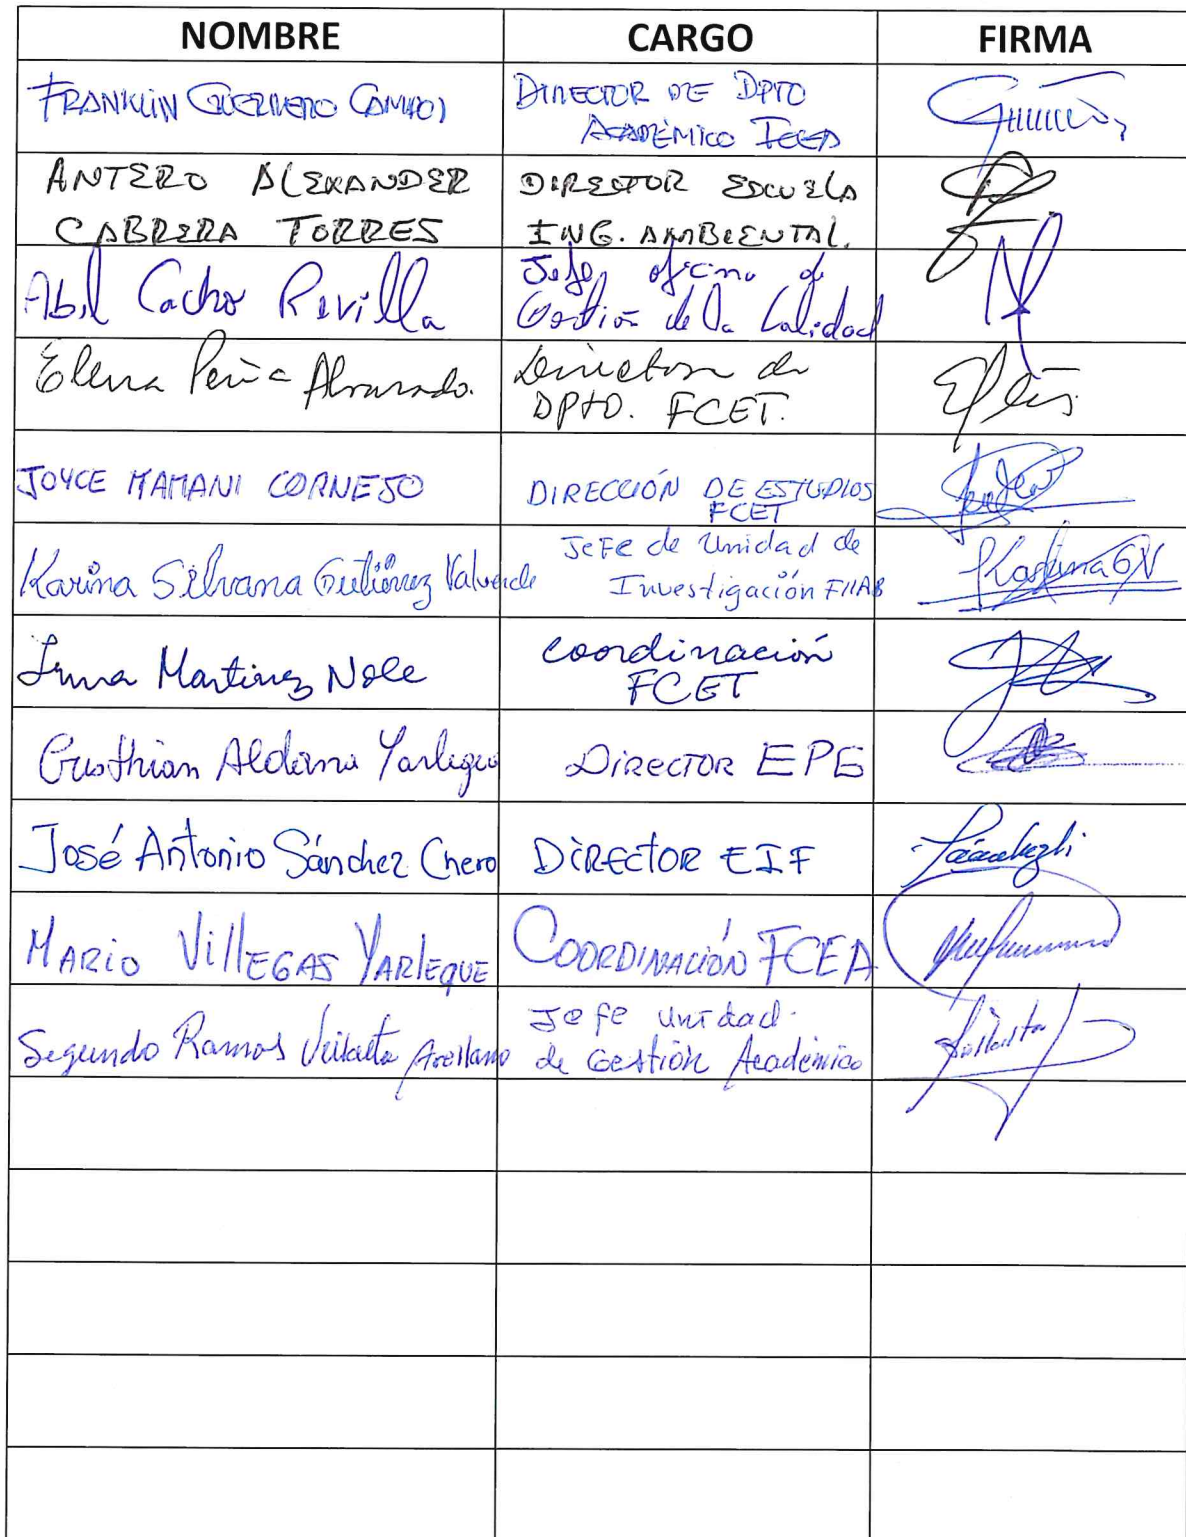 NOMBRE CARGO FIRMA
FRANKLIN GUERRERO CAMPOS DIRECTOR DE DPTO
ACADÉMICO FCEA
ANTERO ALEXANDER DIRECTOR ESCUELA
CABRERA TORRES ING. AMBIENTAL.
Abel Cacho Revilla Jefe oficina de
Gestión de la Calidad
Elena Peña Alvarado. Directora de
DPTO. FCET.
JOYCE MAMANI CORNEJO DIRECCIÓN DE ESTUDIOS
FCET
Karina Silvana Gutiérrez Valverde Jefe de Unidad de
Investigación FIIAB Karina GV
Irma Martinez Nole Coordinación
FCET
Cristhian Aldana Yarleque DIRECTOR EPE
José Antonio Sánchez Chero DIRECTOR EIF
MARIO VILLEGAS YARLEQUE COORDINACIÓN FCEA
Segundo Ramos Arellano Jefe unidad
de Gestión Académica